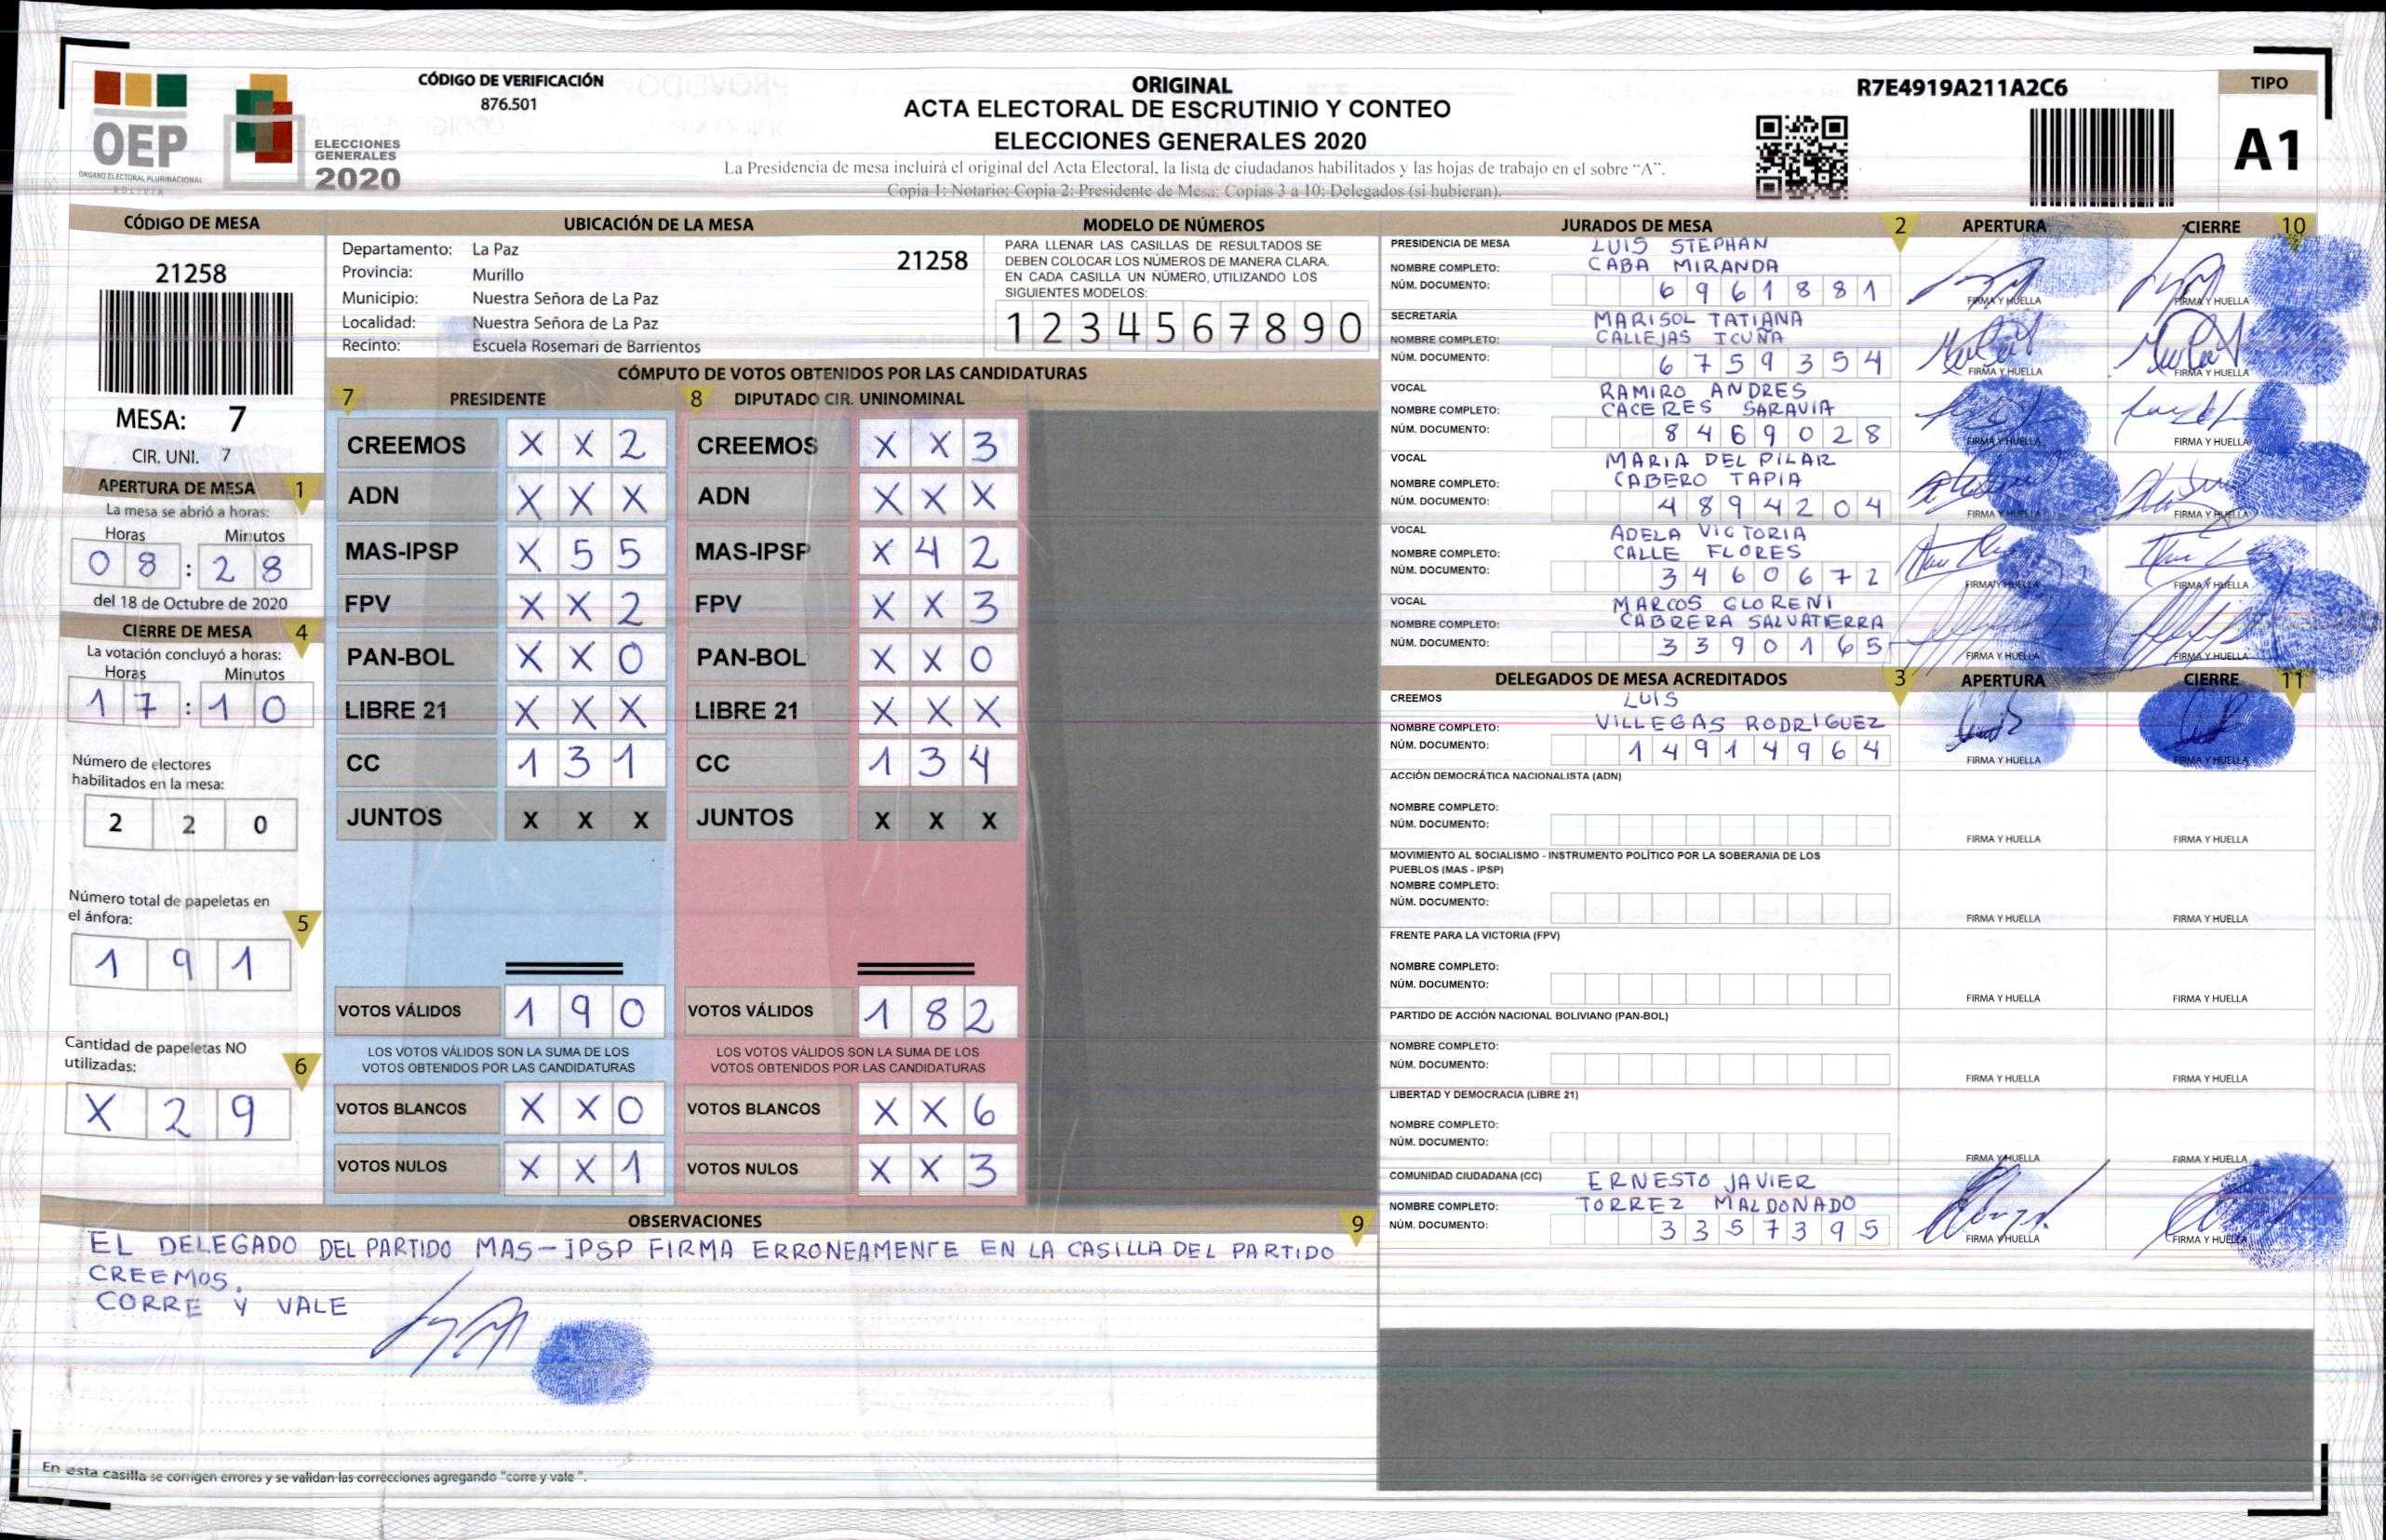 OEP
ÓRGANO ELECTORAL PLURINACIONAL
BOLIVIA
ELECCIONES
GENERALES
2020
CÓDIGO DE VERIFICACIÓN
876.501
ORIGINAL
ACTA ELECTORAL DE ESCRUTINIO Y CONTEO
ELECCIONES GENERALES 2020
La Presidencia de mesa incluirá el original del Acta Electoral, la lista de ciudadanos habilitados y las hojas de trabajo en el sobre “A”.
Copia 1: Notario; Copia 2: Presidente de Mesa; Copias 3 a 10: Delegados (si hubieran).
R7E4919A211A2C6
TIPO
A1
CÓDIGO DE MESA
21258
MESA: 7
CIR. UNI. 7
APERTURA DE MESA 1
La mesa se abrió a horas:
Horas Minutos
08:28
del 18 de Octubre de 2020
CIERRE DE MESA 4
La votación concluyó a horas:
Horas Minutos
17:10
Número de electores
habilitados en la mesa:
2 2 0
Número total de papeletas en
el ánfora: 5
1 9 1
Cantidad de papeletas NO
utilizadas: 6
X 2 9
UBICACIÓN DE LA MESA
Departamento: La Paz
Provincia: Murillo
Municipio: Nuestra Señora de La Paz
Localidad: Nuestra Señora de La Paz
Recinto: Escuela Rosemari de Barrientos
21258
MODELO DE NÚMEROS
PARA LLENAR LAS CASILLAS DE RESULTADOS SE
DEBEN COLOCAR LOS NÚMEROS DE MANERA CLARA.
EN CADA CASILLA UN NÚMERO, UTILIZANDO LOS
SIGUIENTES MODELOS:
1 2 3 4 5 6 7 8 9 0
CÓMPUTO DE VOTOS OBTENIDOS POR LAS CANDIDATURAS
7 PRESIDENTE
CREEMOS X X 2
ADN X X X
MAS-IPSP X 5 5
FPV X X 2
PAN-BOL X X 0
LIBRE 21 X X X
CC 1 3 1
JUNTOS X X X
VOTOS VÁLIDOS 1 9 0
LOS VOTOS VÁLIDOS SON LA SUMA DE LOS
VOTOS OBTENIDOS POR LAS CANDIDATURAS
VOTOS BLANCOS X X 0
VOTOS NULOS X X 1
8 DIPUTADO CIR. UNINOMINAL
CREEMOS X X 3
ADN X X X
MAS-IPSP X 4 2
FPV X X 3
PAN-BOL X X 0
LIBRE 21 X X X
CC 1 3 4
JUNTOS X X X
VOTOS VÁLIDOS 1 8 2
LOS VOTOS VÁLIDOS SON LA SUMA DE LOS
VOTOS OBTENIDOS POR LAS CANDIDATURAS
VOTOS BLANCOS X X 6
VOTOS NULOS X X 3
JURADOS DE MESA 2 APERTURA CIERRE 10
PRESIDENCIA DE MESA LUIS STEPHAN
NOMBRE COMPLETO: CABA MIRANDA
NÚM. DOCUMENTO: 6961881 FIRMA Y HUELLA FIRMA Y HUELLA
SECRETARÍA MARISOL TATIANA
NOMBRE COMPLETO: CALLEJAS ICUÑA
NÚM. DOCUMENTO: 6759354 FIRMA Y HUELLA FIRMA Y HUELLA
VOCAL RAMIRO ANDRES
NOMBRE COMPLETO: CACERES SARAVIA
NÚM. DOCUMENTO: 8469028 FIRMA Y HUELLA FIRMA Y HUELLA
VOCAL MARIA DEL PILAR
NOMBRE COMPLETO: CABERO TAPIA
NÚM. DOCUMENTO: 4894204 FIRMA Y HUELLA FIRMA Y HUELLA
VOCAL ADELA VICTORIA
NOMBRE COMPLETO: CALLE FLORES
NÚM. DOCUMENTO: 3460672 FIRMA Y HUELLA FIRMA Y HUELLA
VOCAL MARCOS GLORENI
NOMBRE COMPLETO: CABRERA SALVATIERRA
NÚM. DOCUMENTO: 3390165 FIRMA Y HUELLA FIRMA Y HUELLA
DELEGADOS DE MESA ACREDITADOS 3 APERTURA CIERRE 11
CREEMOS LUIS
NOMBRE COMPLETO: VILLEGAS RODRIGUEZ
NÚM. DOCUMENTO: 14914964 FIRMA Y HUELLA FIRMA Y HUELLA
ACCIÓN DEMOCRÁTICA NACIONALISTA (ADN)
NOMBRE COMPLETO:
NÚM. DOCUMENTO: FIRMA Y HUELLA FIRMA Y HUELLA
MOVIMIENTO AL SOCIALISMO - INSTRUMENTO POLÍTICO POR LA SOBERANIA DE LOS
PUEBLOS (MAS - IPSP)
NOMBRE COMPLETO:
NÚM. DOCUMENTO: FIRMA Y HUELLA FIRMA Y HUELLA
FRENTE PARA LA VICTORIA (FPV)
NOMBRE COMPLETO:
NÚM. DOCUMENTO: FIRMA Y HUELLA FIRMA Y HUELLA
PARTIDO DE ACCIÓN NACIONAL BOLIVIANO (PAN-BOL)
NOMBRE COMPLETO:
NÚM. DOCUMENTO: FIRMA Y HUELLA FIRMA Y HUELLA
LIBERTAD Y DEMOCRACIA (LIBRE 21)
NOMBRE COMPLETO:
NÚM. DOCUMENTO: FIRMA Y HUELLA FIRMA Y HUELLA
COMUNIDAD CIUDADANA (CC) ERNESTO JAVIER
NOMBRE COMPLETO: TORREZ MALDONADO
NÚM. DOCUMENTO: 3357395 FIRMA Y HUELLA FIRMA Y HUELLA
OBSERVACIONES 9
EL DELEGADO DEL PARTIDO MAS-IPSP FIRMA ERRONEAMENTE EN LA CASILLA DEL PARTIDO
CREEMOS.
CORRE Y VALE
En esta casilla se corrigen errores y se validan las correcciones agregando "corre y vale ".